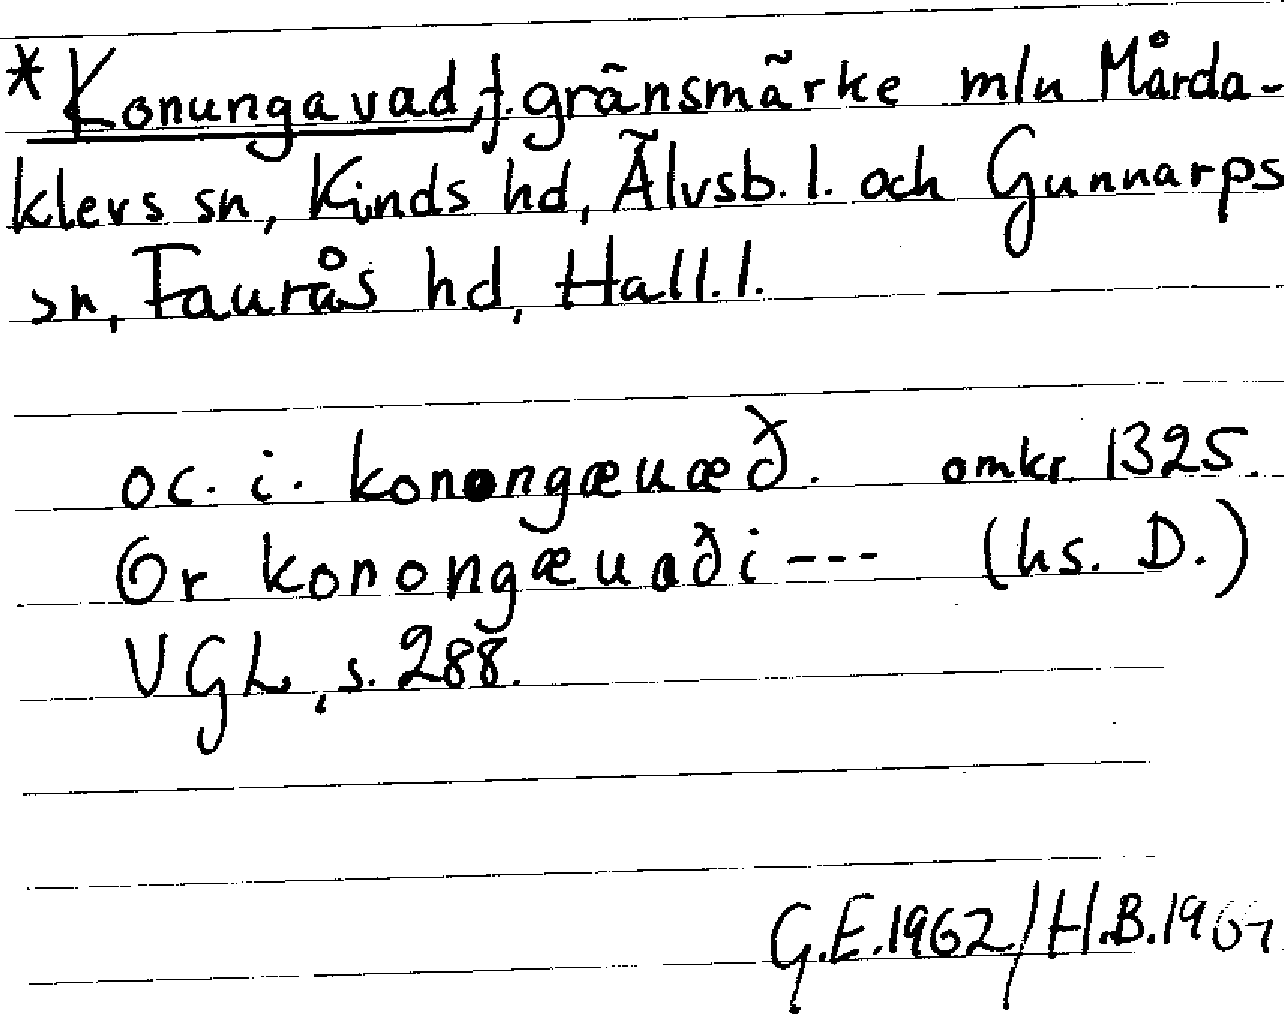 *Konungavad, f. gränsmärke m/n Mårda-
klevs sn, Kinds hd, Älvsb. l. och Gunnarps
sn, Faurås hd, Hall. l.
oc. i. konongæuæð. omkr. 1325.
Or konongæuaði --- (hs. D.)
VGL, s. 288.
G.E. 1962/H.B. 1964